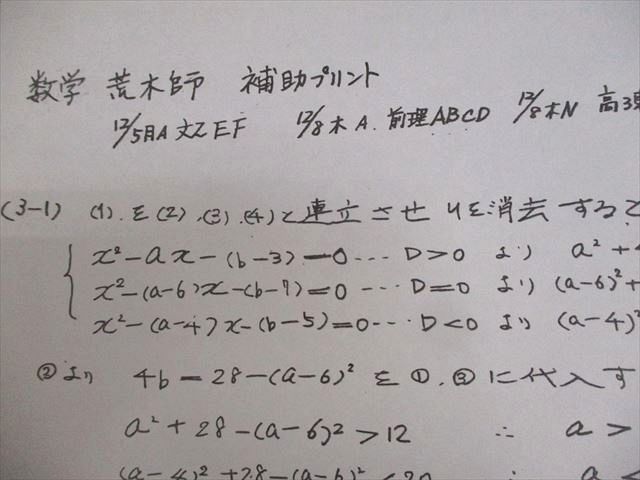 数学 荒木師 補助プリント
12/5月A 文Z EF 12/8 木 A. 前理ABCD 12/8木N 高3
(3-1) (1).を(2).(3).(4)と連立させyを消去すると
x²-ax-(b-3)=0…D>0 より a²+4
x²-(a-6)x-(b-7)=0…D=0 より (a-6)²+
x²-(a-4)x-(b-5)=0…D<0 より (a-4)²
②より 4b=28-(a-6)² を①.③に代入す
a²+28-(a-6)²>12 ∴ a>
(a-4)²+28-(a-6)²<20 ∴ a<